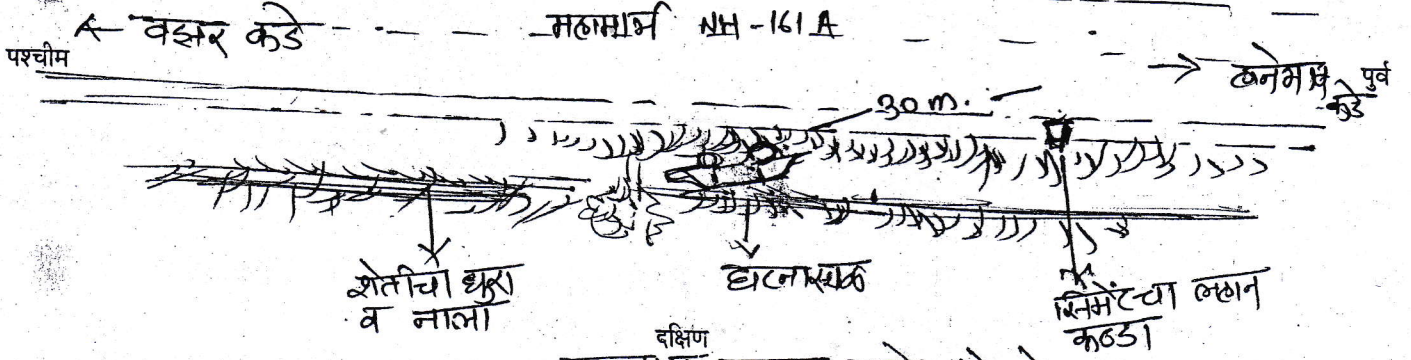 ← वझर कडे
महामार्ग NH-161A
पश्चीम
→
पुर्व
कडे
30 m.
शेतीचा धुरा
व नाला
घटनास्थळ
सिमेंटचा लहान
कठडा
दक्षिण